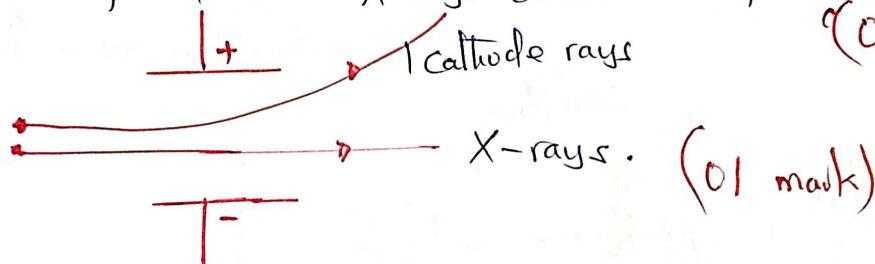 +
Cathode rays
X-rays.
(01 mark)
-